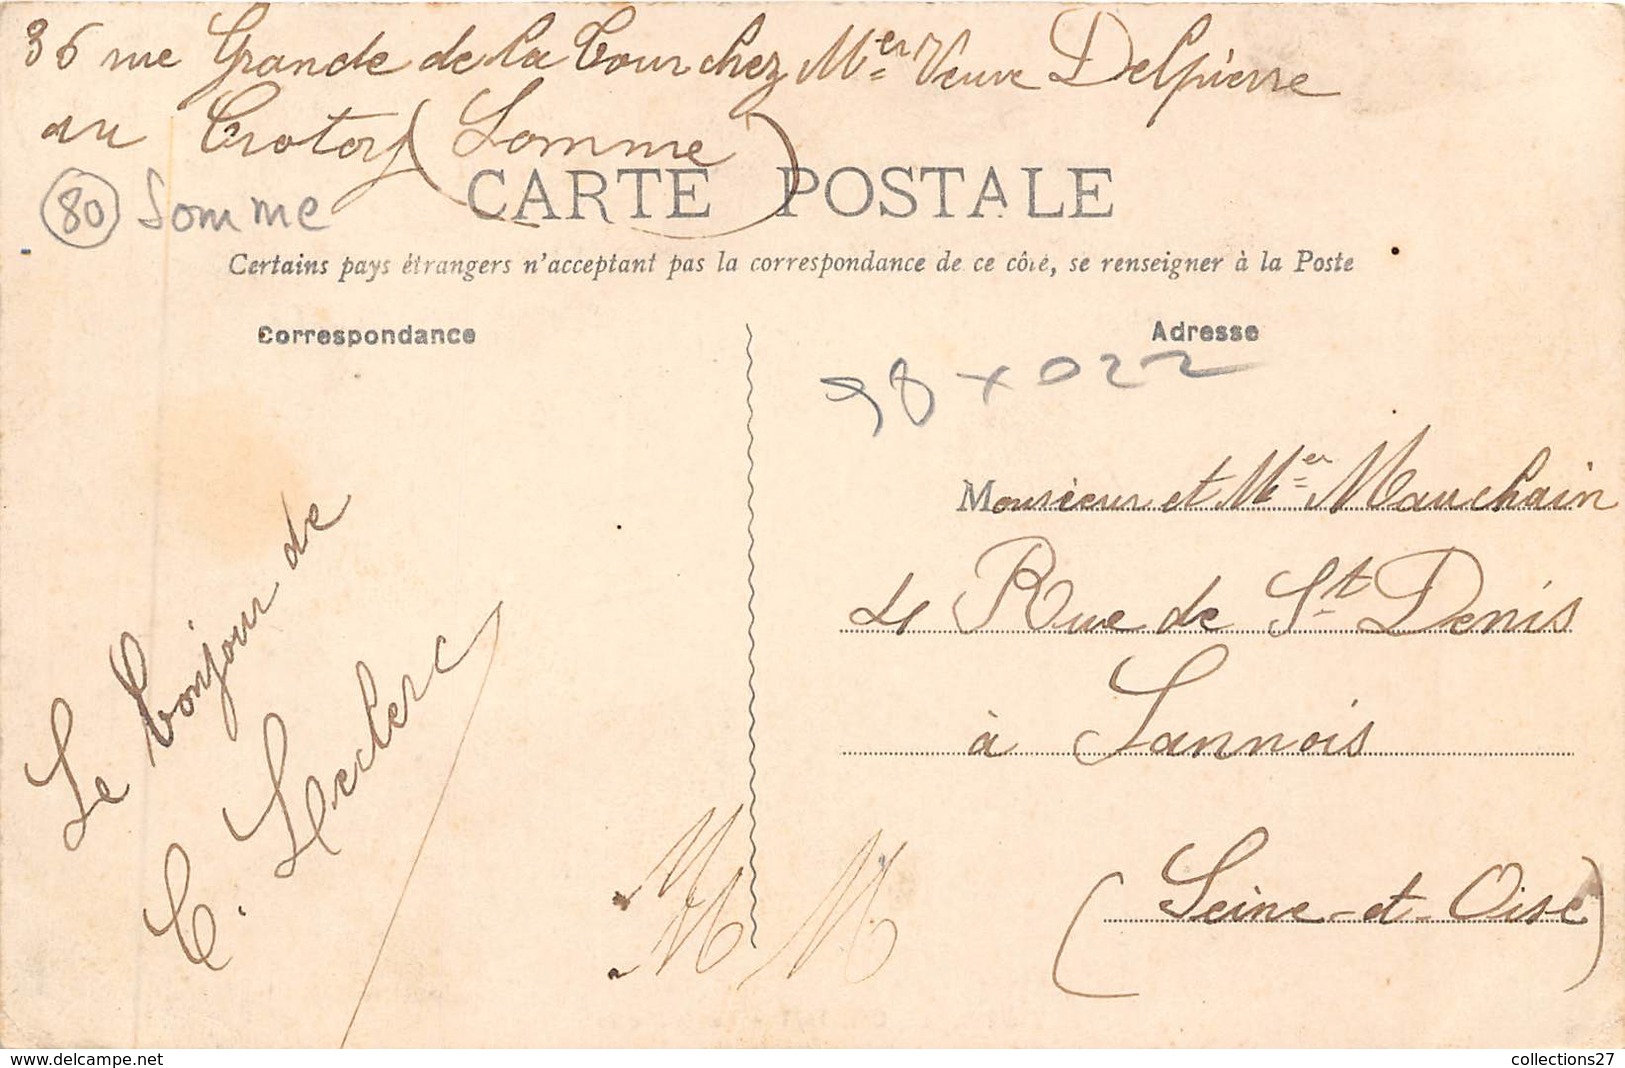 36 rue Grande de la Tour chez Mer Veuve Delpierre
au Crotoy (Somme)
80 Somme
CARTE POSTALE
Certains pays étrangers n'acceptant pas la correspondance de ce côté, se renseigner à la Poste
Correspondance
Adresse
98 x 022
Monsieur et Mer Mauchain
4 Rue de St Denis
à Sannois
(Seine-et-Oise)
Le bonjour de
C. Leclerc
M M
M
www.delcampe.net
collections27